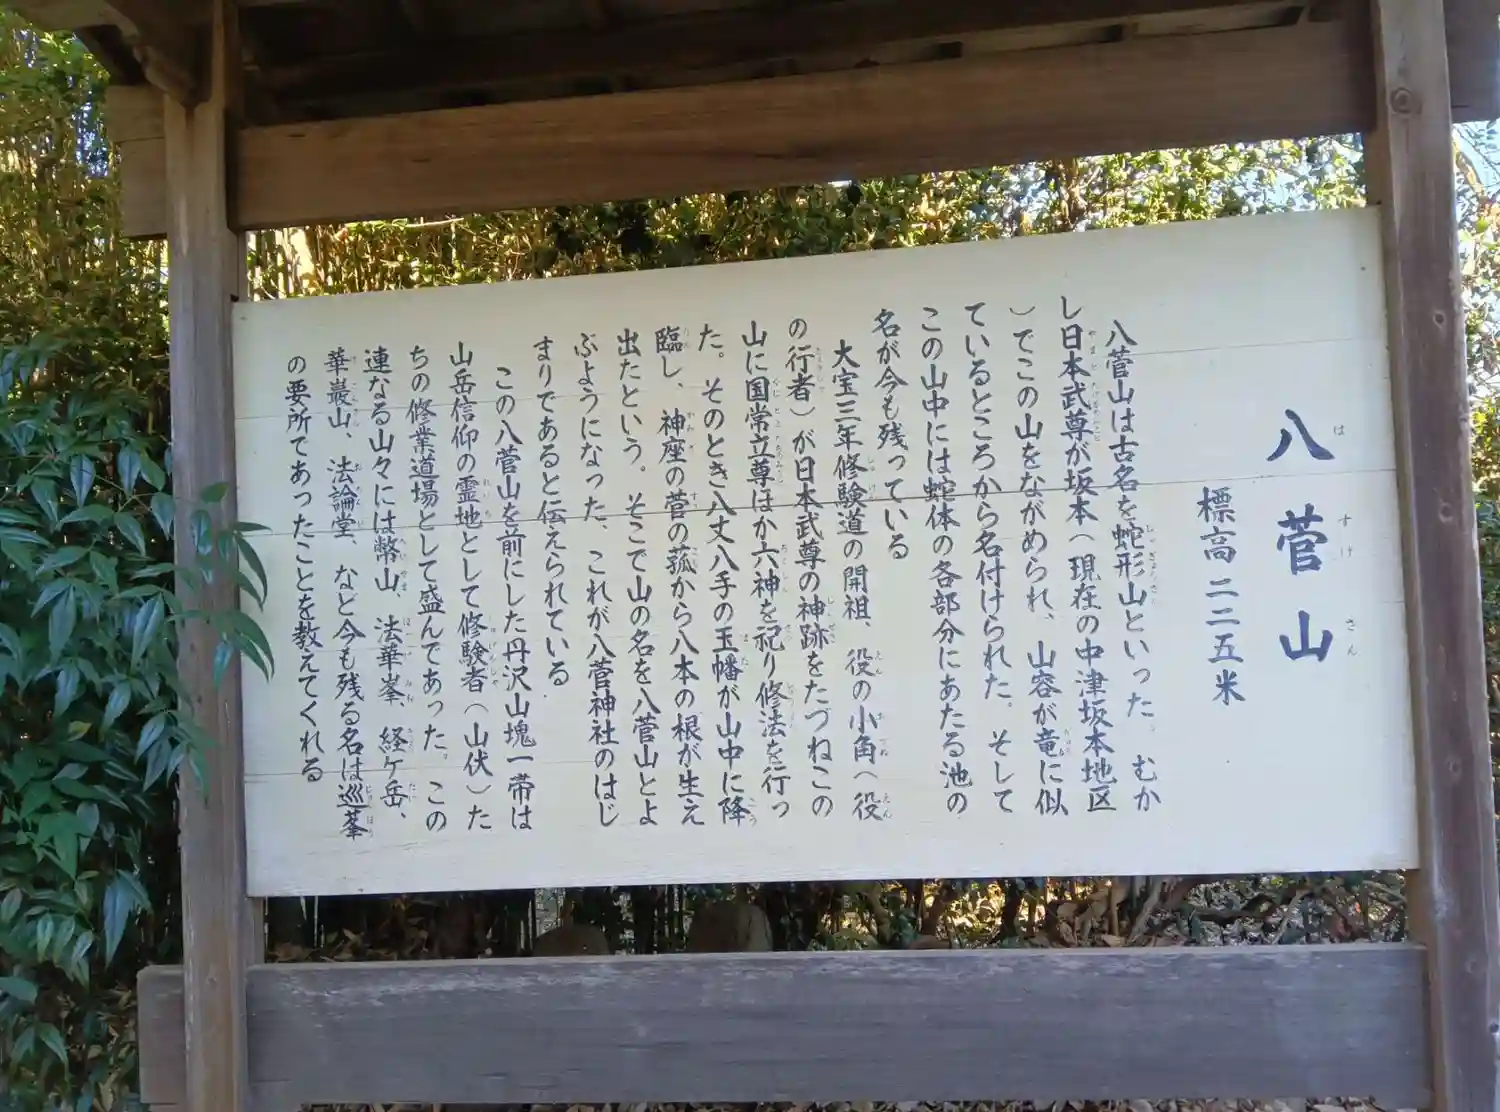 八菅山
標高二二五米
八菅山は古名を蛇形山といった。むか
し日本武尊が坂本（現在の中津坂本地区
）でこの山をながめられ、山容が竜に似
ているところから名付けられた。そして
この山中には蛇体の各部分にあたる池の
名が今も残っている
大宝三年修験道の開祖、役の小角（役
の行者）が日本武尊の神跡をたづねこの
山に国常立尊ほか六神を祀り修法を行っ
た。そのとき八丈八手の玉幡が山中に降
臨し、神座の菅の菰から八本の根が生え
出たという。そこで山の名を八菅山とよ
ぶようになった、これが八菅神社のはじ
まりであると伝えられている
この八菅山を前にした丹沢山塊一帯は
山岳信仰の霊地として修験者（山伏）た
ちの修業道場として盛んであった。この
連なる山々には幣山、法華峯、経ケ岳、
華嚴山、法論堂、など今も残る名は巡峯
の要所であったことを教えてくれる